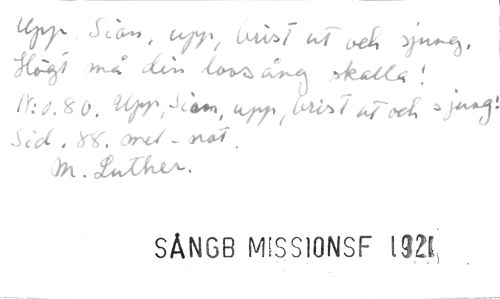 Upp, Sion, upp, brist ut och sjung.
Högt må din lovsång skalla!
N:o. 80. Upp, Sion, upp, brist ut och sjung!
Sid. 88. mel - not.
M. Luther.
SÅNGB MISSIONSF 1921